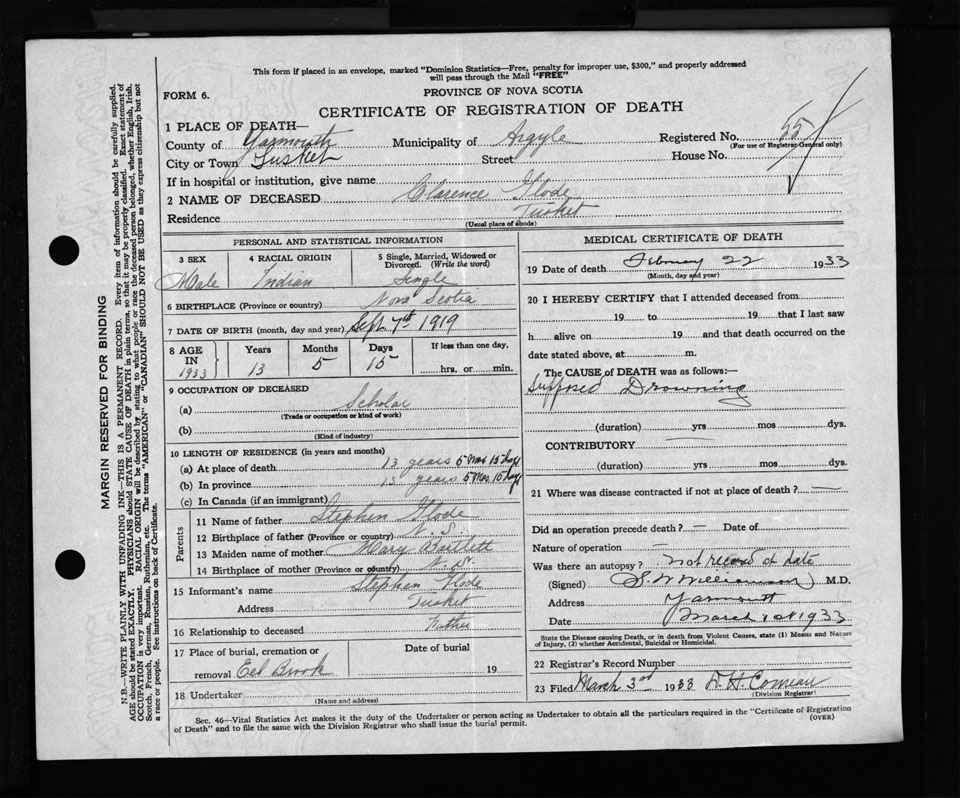 This form if placed in an envelope, marked "Dominion Statistics—Free, penalty for improper use, $300," and properly addressed
will pass through the Mail "FREE"
FORM 6.
PROVINCE OF NOVA SCOTIA
CERTIFICATE OF REGISTRATION OF DEATH
1 PLACE OF DEATH—
County of Yarmouth Municipality of Argyle Registered No. 25
(For use of Registrar-General only)
City or Town Tusket Street House No.
If in hospital or institution, give name
2 NAME OF DECEASED Clarence Glode
Residence Tusket
(Usual place of abode)
PERSONAL AND STATISTICAL INFORMATION
3 SEX 4 RACIAL ORIGIN 5 Single, Married, Widowed or
Divorced. (Write the word)
Male Indian Single
6 BIRTHPLACE (Province or country) Nova Scotia
7 DATE OF BIRTH (month, day and year) Sept 7th 1919
8 AGE IN 1933 Years Months Days If less than one day,
13 5 15 hrs. or min.
9 OCCUPATION OF DECEASED
(a) Scholar
(Trade or occupation or kind of work)
(b)
(Kind of industry)
10 LENGTH OF RESIDENCE (in years and months)
(a) At place of death 13 years 5 mos 15 days
(b) In province 13 years 5 mos 15 days
(c) In Canada (if an immigrant)
Parents
11 Name of father Stephen Glode
12 Birthplace of father (Province or country) N. S.
13 Maiden name of mother Mary Bartlett
14 Birthplace of mother (Province or country) N. S.
15 Informant's name Stephen Glode
Address Tusket
16 Relationship to deceased Father
17 Place of burial, cremation or Date of burial
removal Eel Brook 19
18 Undertaker
(Name and address)
MEDICAL CERTIFICATE OF DEATH
19 Date of death February 22 1933
(Month, day and year)
20 I HEREBY CERTIFY that I attended deceased from
19 to 19 that I last saw
h alive on 19 and that death occurred on the
date stated above, at m.
The CAUSE of DEATH was as follows:
Supposed Drowning
(duration) yrs mos dys.
CONTRIBUTORY
(duration) yrs mos dys.
21 Where was disease contracted if not at place of death?
Did an operation precede death? — Date of
Nature of operation —
Was there an autopsy? not record at date
(Signed) S. W Williamson M.D.
Address Yarmouth
Date March 1st 1933
State the Disease causing Death, or in death from Violent Causes, state (1) Means and Nature
of Injury, (2) whether Accidental, Suicidal or Homicidal.
22 Registrar's Record Number
23 Filed March 3rd 1933 Comeau
(Division Registrar)
Sec. 46—Vital Statistics Act makes it the duty of the Undertaker or person acting as Undertaker to obtain all the particulars required in the "Certificate of Registration
of Death" and to file the same with the Division Registrar who shall issue the burial permit. (OVER)
MARGIN RESERVED FOR BINDING
N.B.—WRITE PLAINLY WITH UNFADING INK—THIS IS A PERMANENT RECORD. Every item of information should be carefully supplied.
AGE should be stated EXACTLY. PHYSICIANS should STATE CAUSE OF DEATH in plain terms, so that it may be properly classified. Exact statement of
OCCUPATION is very important. RACIAL ORIGIN will be described by stating to what people or race the deceased person belonged, whether English, Irish,
Scotch, French, German, Russian, Ruthenian, etc. The terms "AMERICAN" or "CANADIAN" SHOULD NOT BE USED as they express citizenship but not
a race or people. See instructions on back of Certificate.